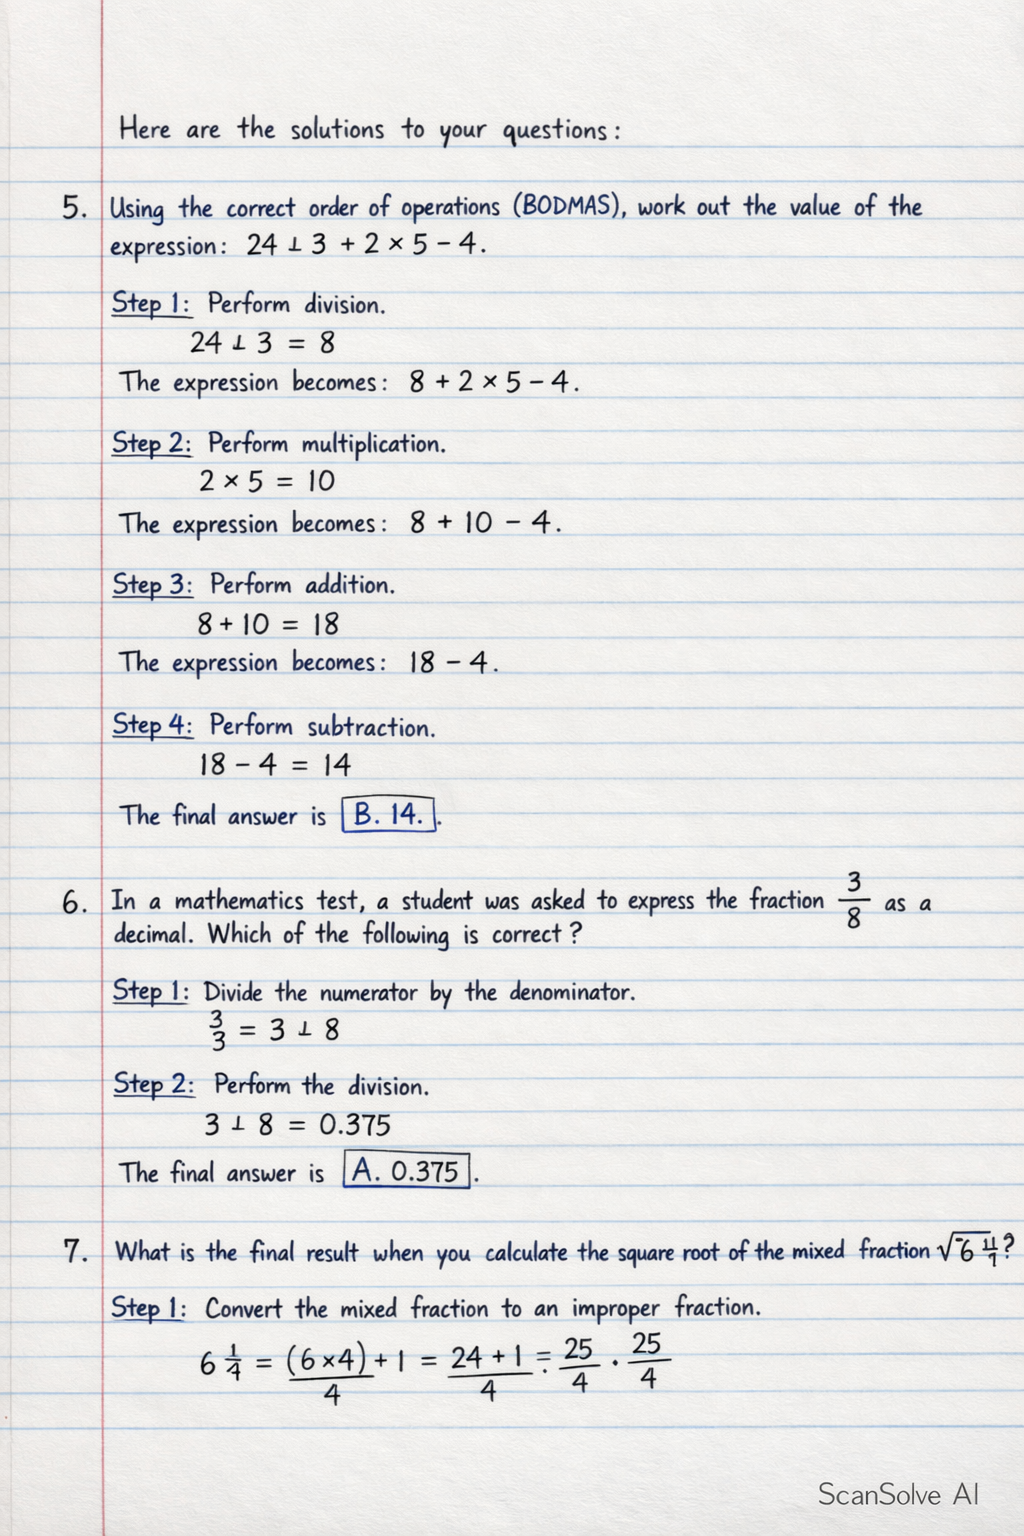 Here are the solutions to your questions:
5. Using the correct order of operations (BODMAS), work out the value of the
expression: 24 ⊥ 3 + 2 × 5 − 4.
Step 1: Perform division.
24 ⊥ 3 = 8
The expression becomes: 8 + 2 × 5 − 4.
Step 2: Perform multiplication.
2 × 5 = 10
The expression becomes: 8 + 10 − 4.
Step 3: Perform addition.
8 + 10 = 18
The expression becomes: 18 − 4.
Step 4: Perform subtraction.
18 − 4 = 14
The final answer is B. 14..
6. In a mathematics test, a student was asked to express the fraction 3/8 as a
decimal. Which of the following is correct?
Step 1: Divide the numerator by the denominator.
3/3 = 3 ⊥ 8
Step 2: Perform the division.
3 ⊥ 8 = 0.375
The final answer is A. 0.375.
7. What is the final result when you calculate the square root of the mixed fraction √6 ?
Step 1: Convert the mixed fraction to an improper fraction.
6 1/4 = (6×4)/4 + 1 = (24 + 1)/4 = 25/4 . 25/4
ScanSolve AI